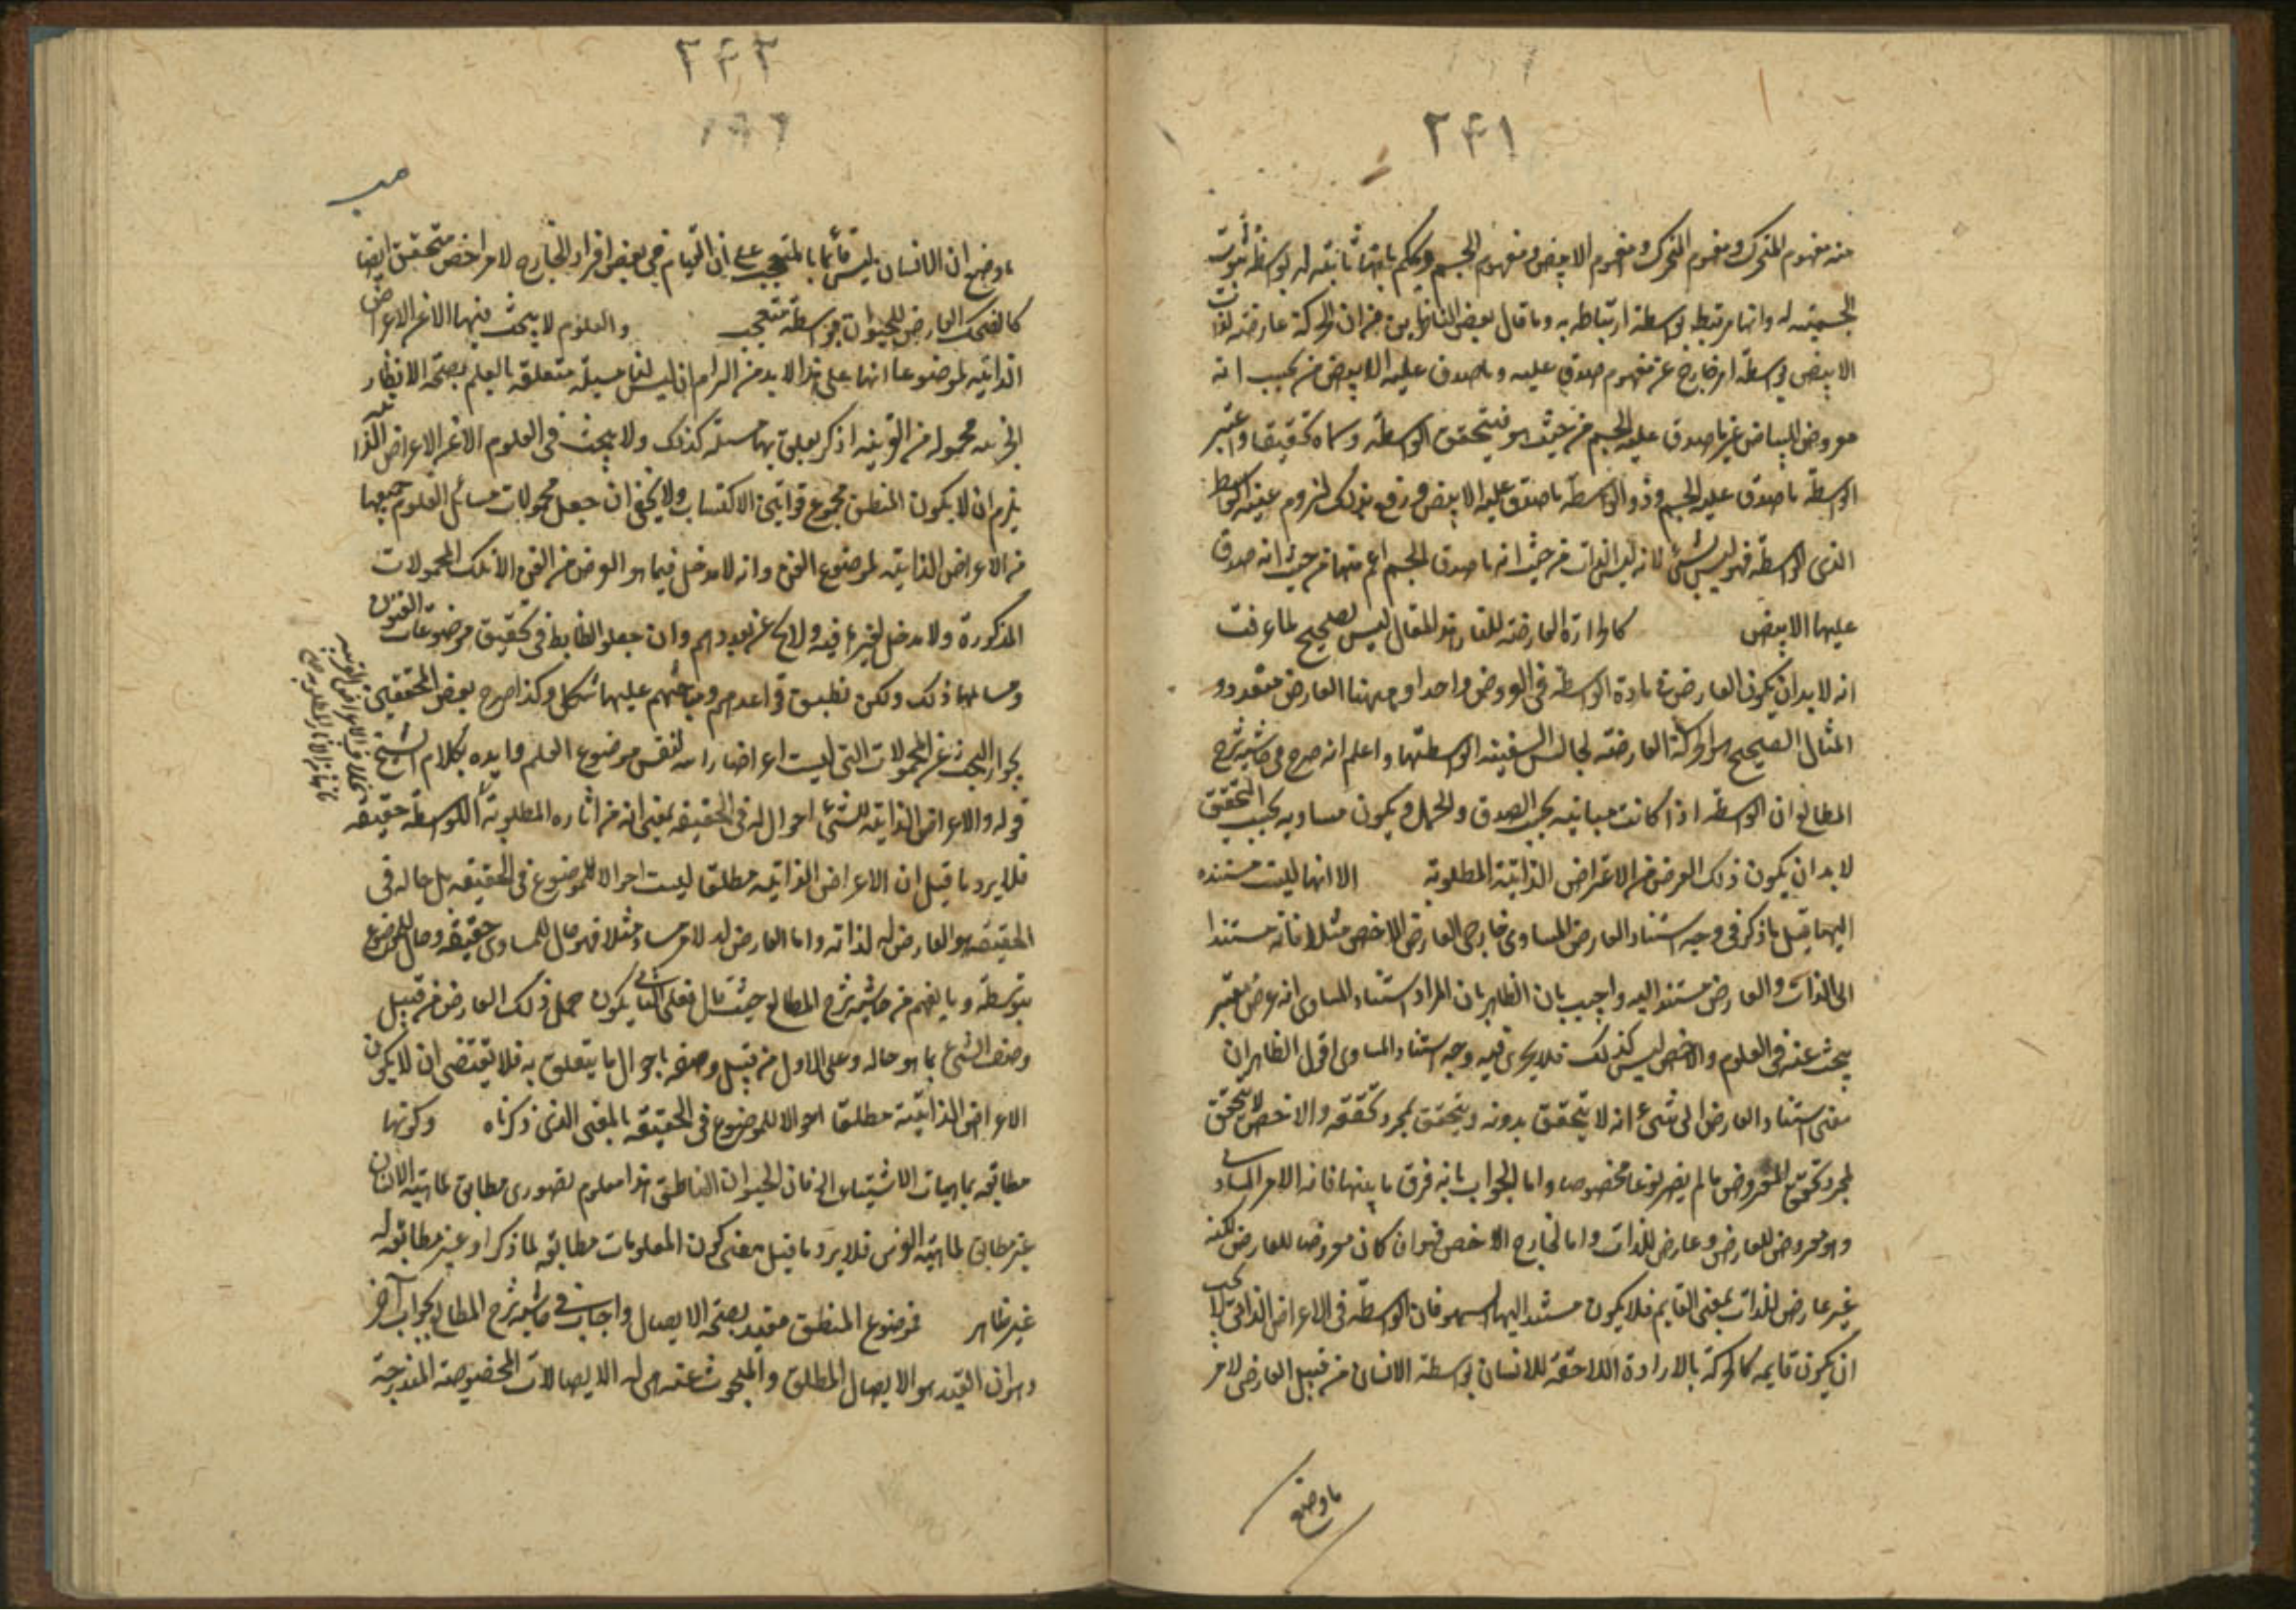 ٢٤١
منه مفهوم المتحرك ومفهوم المتحرك ومفهوم الابيض ومفهوم الجسم ويحكم بانها ثابتة له بواسطة ثبوت
الجسمية له وانها مرتبط بواسطة ارتباطه به وما قال بعض الناظرين من ان الحركة عارضة لذات
الابيض بواسطة امر خارج عن مفهوم صدق عليه وما صدق عليه الابيض من بحيث انه
معروض البياض غير ما صدق عليه الجسم من حيث هو فيتحقق الواسطة وسماه تحقيقا واعتبر
الواسطة ما صدق عليه الجسم وذو الواسطة ما صدق عليه الابيض
الذى الواسطة فهو ليس بشئ لانه ليس الذات من حيث انه ما صدق الجسم اعم منها من حيث انه صدق
عليها الابيض كالحرارة العارضة للنار هذا المقال ليس بصحيح لما عرفت
انه لا بد ان يكون العارض فى مادة الواسطة فى العروض واحدا وههنا العارض متعدد و
المثال الصحيح هو الحركة العارضة لجالس السفينة بواسطتها واعلم انه صرح فى حاشية شرح
المطالع ان الواسطة اذا كانت مباينة بحسب الصدق والحمل ويكون مساويه بحسب التحقق
لا بد ان يكون ذلك العرض من الاعراض الذاتية المطلوبة الا انها ليست مستنده
اليها قيل ما ذكر فى وجه استناد العارض المساوى جار فى العارض الاخص مثلا فانه مستندا
الى الذات والعارض مستند اليه واجيب بان الظاهر بان المراد استناد المساوى انه عرض معتبر
يبحث عنه فى العلوم والاخص ليس كذلك فلا يجرى فيه وجه استناد المساوى اقول الظاهر ان
معنى استناد العارض الى شئ انه لا يتحقق بدونه ويتحقق بمجرد تحققه والاخص لا يتحقق
بمجرد تحقق المعروض ما لم يصر نوعا مخصوصا واما الجواب بانه فرق ما بينهما فانه الامر المساوى
وهو معروض للعارض وعارض للذات واما الخارج الاخص فهو ان كان معروضا للعارض لكنه
غير عارض للذات بمعنى القايم فلا يكون مستندا اليها سهو فان الواسطة فى الاعراض الذاتى لا يجب
ان يكون قايمه كالحركة بالارادة اللاحقة للانسان بواسطة الانسان من قبيل العارض لامر
ما وضع
٢٤٢
ما وضع ان الانسان ليس قائما بالمتعجب على ان القيام فى بعض افراد الخارج لامر اخص متحقق ايضا
كالضحك العارض للحيوان بواسطة متعجب والعلوم لا يبحث فيها الا عن الاعراض
الذاتية لموضوعاتها على هذا لا بد من الزام ان ليس لنا مسئلة متعلقة بالعلم بصحة الانظار
الجزئيه محمولها من القرينه اذ كر يعلق بها مسئلة كذلك ولا يبحث فى العلوم الا عن الاعراض الذاتية
يلزم ان لا يكون المنطق مجموع قوانين الاكتساب ولا يخفى ان جعل محمولات مسائل العلوم جميعها
من الاعراض الذاتية لموضوع الفن وانه لا مدخل فيما هو الغرض من الفن الا تلك المحمولات
المذكورة ولا مدخل لغيرها فيه ولا بحث عن بعددهم وان جعلوا الضابط فى تحقيق موضوعات الفنون
ومسائلها ذلك ولكن تطبيق قواعدهم ومباحثهم عليها مشكل وكذا صرح بعض المحققين
بجواز البحث عن المحمولات التى ليست اعراضا ذاتيه لنفس موضوع العلم وايده بكلام الشيخ
قوله والاعراض الذاتية للشئ احوال له فى الحقيقه بمعنى انه من اثاره المطلوبة بلا واسطة حقيقة
فلا يرد ما قيل ان الاعراض الذاتية مطلقا ليست احوالا للموضوع فى الحقيقه بل حاله فى
الحقيقه هو العارض له لذاته واما العارض له لامر مساو مثلا فهو حال للمساوى حقيقة وحال للموضوع
بتوسطه وما يفهم من حاشية شرح المطالع حيث قال فعلى الثانى يكون حمل ذلك العارض من قبيل
وصف الشئ بما هو حاله وعلى الاول من قبيل وصفه باحوال ما يتعلق به فلا يقتضى ان لا يكون
الاعراض الذاتية مطلقا احوالا للموضوع فى الحقيقة بالمعنى الذى ذكرناه وكونها
مطابقه بماهيات الاشياء الخ فان الحيوان الناطق هذا معلوم تصورى مطابق لماهية الانسان
غير مطابق لماهية الفرس فلا يرد ما قيل معنى كون المعلومات مطابقه لما ذكر او غير مطابقة له
غير ظاهر فموضوع المنطق مقيد بصحة الايصال واجاب فى حاشية شرح المطالع بجواب آخر
وهو ان القيد هو الايصال المطلق والمبحوث عنه هى الايصالات المخصوصة المندرجة